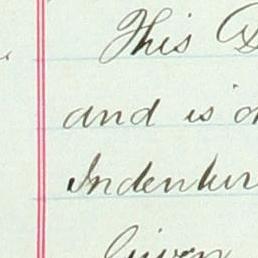 This
and is
Indentur
Given